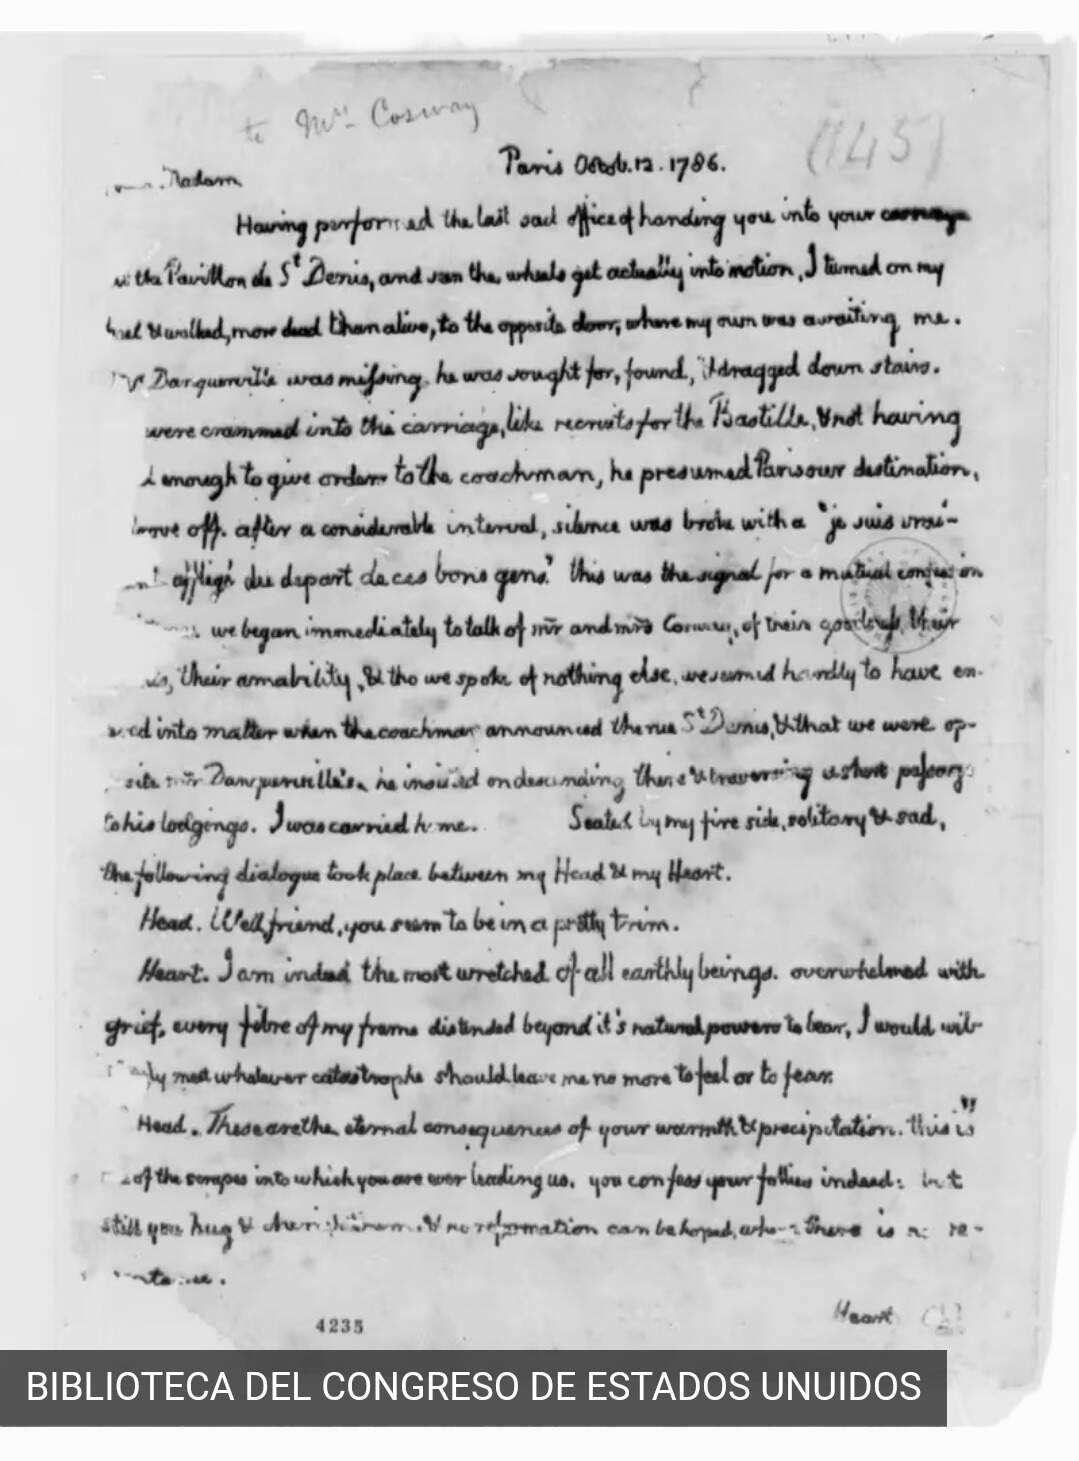 to Mrs. Cosway
(145)
Paris Octob. 12. 1786.
Madam
Having performed the last sad office of handing you into your carriage
the Pavillon de St Denis, and seen the wheels get actually into motion, I turned on my
& walked, more dead than alive, to the opposite door, where my own was awaiting me.
Danquerville was missing. he was sought for, found, & dragged down stairs.
were crammed into the carriage, like recruits for the Bastille, & not having
enough to give orders to the coachman, he presumed Paris our destination,
off. after a considerable interval, silence was broke with a "je suis vrai-
affligé du depart de ces bons gens." this was the signal for a mutual confession
we began immediately to talk of mr and mrs Cosway, of their goodness, their
, their amability, & tho we spoke of nothing else, we seemed hardly to have en-
into matter when the coachman announced the rue St Denis, & that we were op-
mr Danquerville's. he insisted on descending there & traversing a short passage
to his lodgings. I was carried home. Seated by my fire side, solitary & sad,
the following dialogue took place between my Head & my Heart.
Head. Well, friend, you seem to be in a pretty trim.
Heart. I am indeed the most wretched of all earthly beings. overwhelmed with
grief, every fibre of my frame distended beyond it's natural powers to bear, I would wil-
meet whatever catastrophe should leave me no more to feel or to fear.
Head. These are the eternal consequences of your warmth & precipitation. this is
of the scrapes into which you are ever leading us. you confess your follies indeed: but
still you hug & cherish them, & no reformation can be hoped, where there is no re-
Heart
4235
BIBLIOTECA DEL CONGRESO DE ESTADOS UNUIDOS